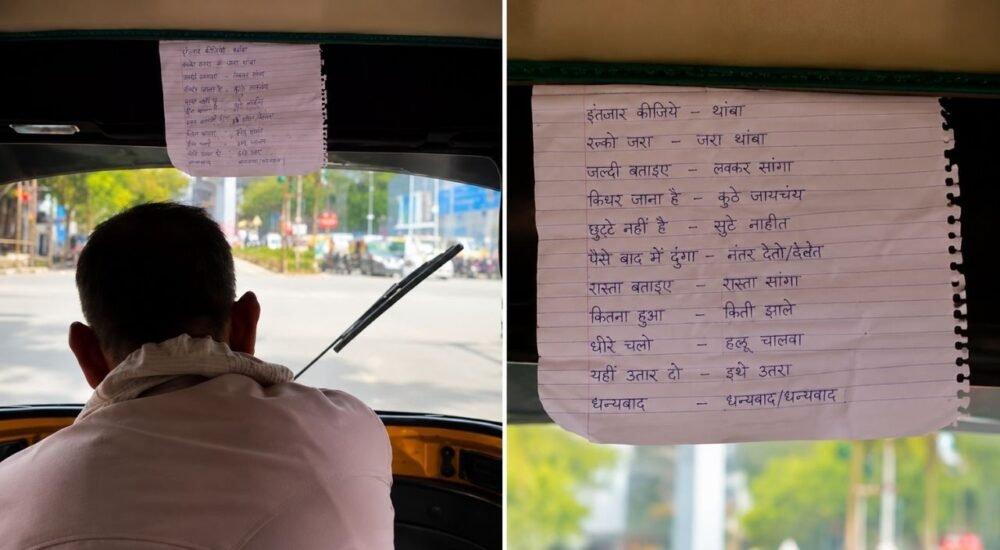 इंतजार कीजिये – थांबा
रुको जरा – जरा थांबा
जल्दी बताइए – लवकर सांगा
किधर जाना है – कुठे जायचंय
छुट्टे नहीं है – सुटे नाहीत
पैसे बाद में दुंगा – नंतर देतो/देतेत
रास्ता बताइए – रास्ता सांगा
कितना हुआ – किती झाले
धीरे चलो – हलू चालवा
यहीं उतार दो – इथे उतरा
धन्यबाद – धन्यबाद/धन्यवाद